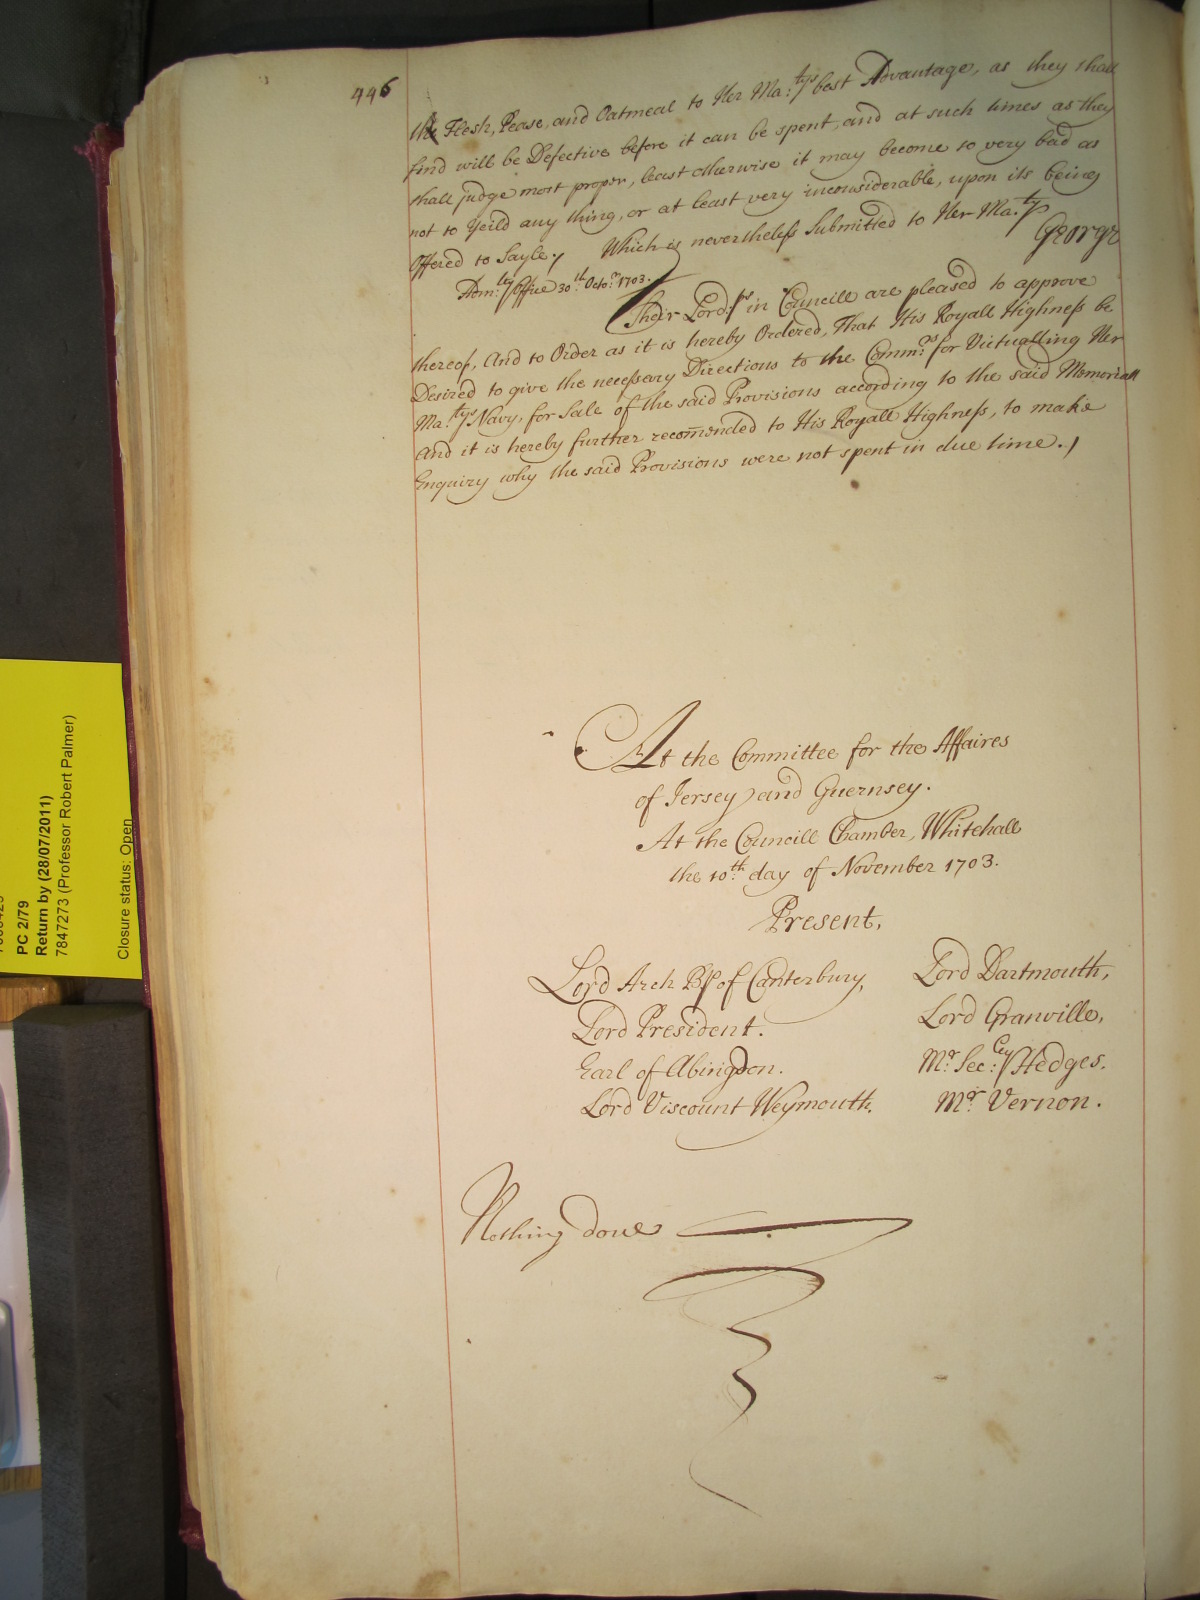 446
the Flesh, Pease, and Oatmeal to Her Ma:tys best Advantage, as they shall
find will be Defective before it can be spent, and at such times as they
shall judge most proper, least otherwise it may become so very bad as
not to Yeild any thing, or at least very inconsiderable, upon its being
Offered to Sayle./ Which is nevertheless Submitted to Her Ma:ty
George
Adm:ty Office 30th Octor 1703.
Their Lordps in Councill are pleased to approve
thereof, And to Order as it is hereby Ordered, That His Royall Highness be
Desired to give the necessary Directions to the Commrs for Victualling Her
Ma:tys Navy, for Sale of the said Provisions according to the said Memoriall
And it is hereby further recomended to His Royall Highness, to make
Enquiry why the said Provisions were not spent in due time./
At the Committee for the Affaires
of Jersey and Guernsey.
At the Councill Chamber, Whitehall
the 10th day of November 1703.
Present,
Lord Arch Bp of Canterbury,
Lord President.
Earl of Abingdon.
Lord Viscount Weymouth.
Lord Dartmouth,
Lord Granville,
Mr Sec:ry Hedges.
Mr Vernon.
Nothing done
PC 2/79
Return by (28/07/2011)
7847273 (Professor Robert Palmer)
Closure status: Open